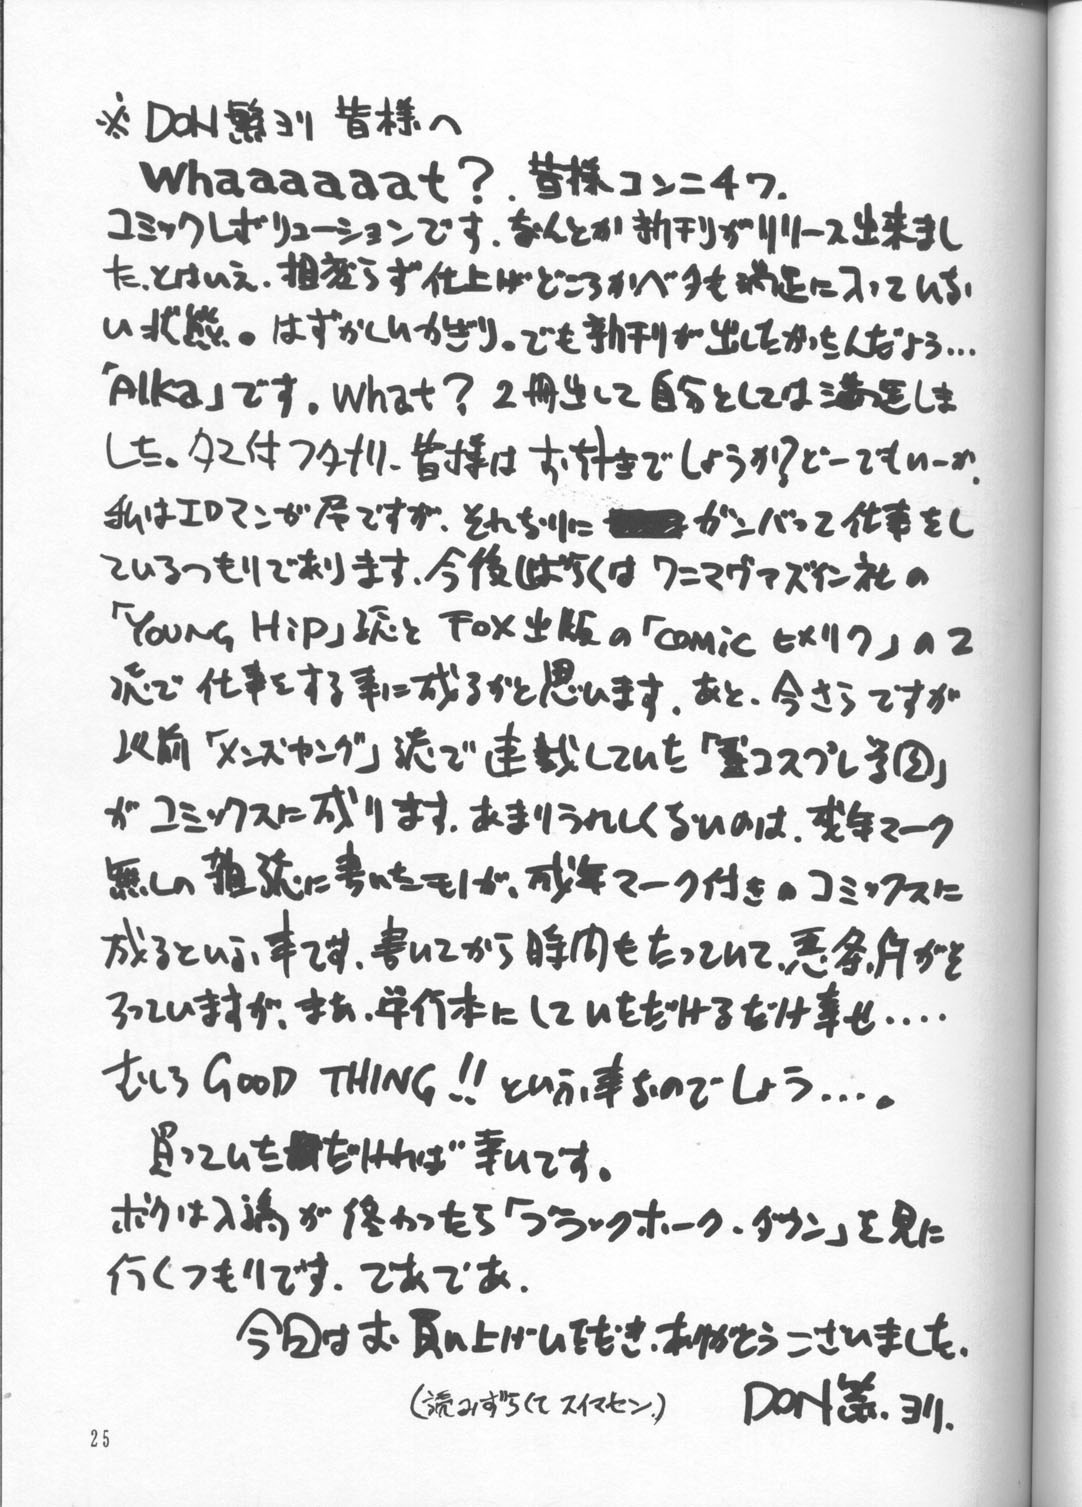 ※ DON繁ヨリ 皆様へ
Whaaaaaaat?. 皆様コンニチワ.
コミックレボリューションです. なんとか新刊がリリース出来まし
た. とはいえ. 相変らず仕上げどころかベタも満足に入っていな
い状態。はずかしいかぎり。でも新刊が出したかったんだよう…
「Alka」です。What? 2冊出して自分としては満足しま
した。タマ付フタナリ. 皆様はお好きでしょうか? どーでもいーか.
私はエロマンガ屋ですが、それなりに ガンバって仕事をし
ているつもりであります. 今後しばらくは ワニマガズイン社の
「YOUNG HiP」誌と FOX出版の「COMiC ヒメクリ」の2
誌で仕事をする事に成るかと思います. あと、今さらですが
以前「メンズヤング」誌で連載していた「コスプレ学園」
がコミックスに成ります. あまりうれしくないのは、成年マーク
無しの雑誌に書いたモノが、成年マーク付きのコミックスに
成るという事です. 書いてから時間もたっていて、悪条件がそ
ろっていますが、まあ、単行本にしていただけるだけ幸せ‥‥
むしろ GOOD THING!! という事なのでしょう…。
買っていただければ幸いです。
ボクは入稿が終わったら「ブラックホーク・ダウン」を見に
行くつもりです. であであ.
今回はお買い上げいただき、ありがとうございました.
(読みずらくてスイマセン.)
DON繁.ヨリ.
25